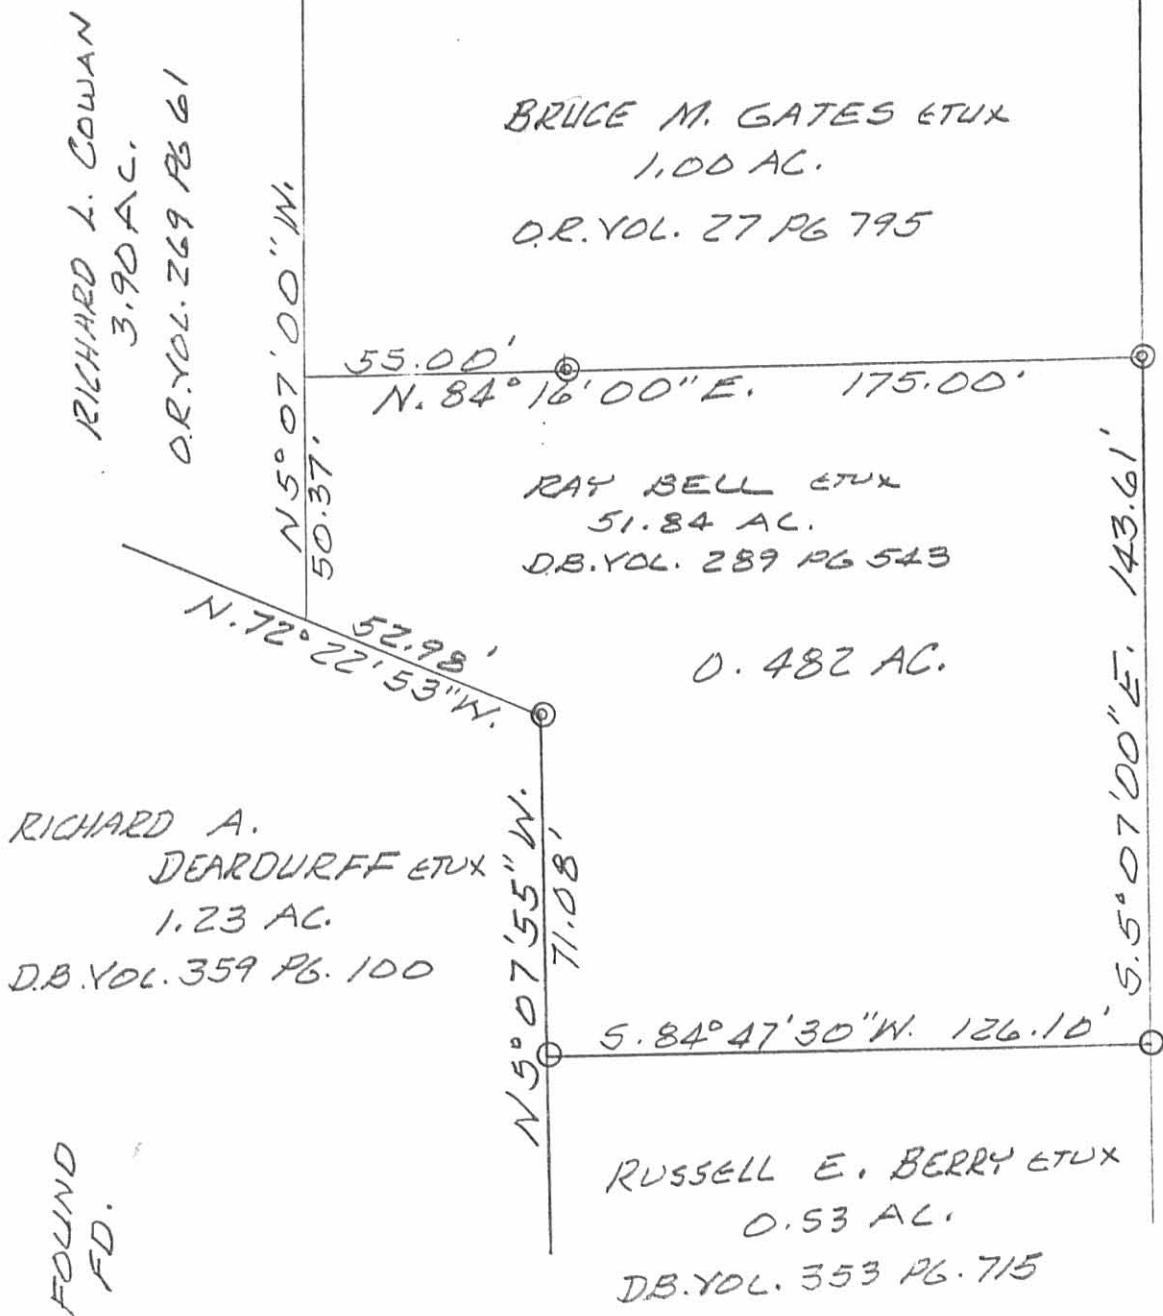 RICHARD L. COWAN
3.90 AC.
O.R. VOL. 269 PG 61
BRUCE M. GATES ETUX
1.00 AC.
O.R. VOL. 27 PG 795
N 5° 07' 00" W.
50.37'
55.00'
N. 84° 16' 00" E. 175.00'
RAY BELL ETUX
51.84 AC.
D.B. VOL. 289 PG 543
0.482 AC.
S. 5° 07' 00" E. 143.61'
52.98'
N. 72° 22' 53" W.
RICHARD A.
DEARDURFF ETUX
1.23 AC.
D.B. VOL. 359 PG. 100
N 5° 07' 55" W.
71.08'
S. 84° 47' 30" W. 126.10'
RUSSELL E. BERRY ETUX
0.53 AC.
D.B. VOL. 353 PG. 715
FOUND
FD.